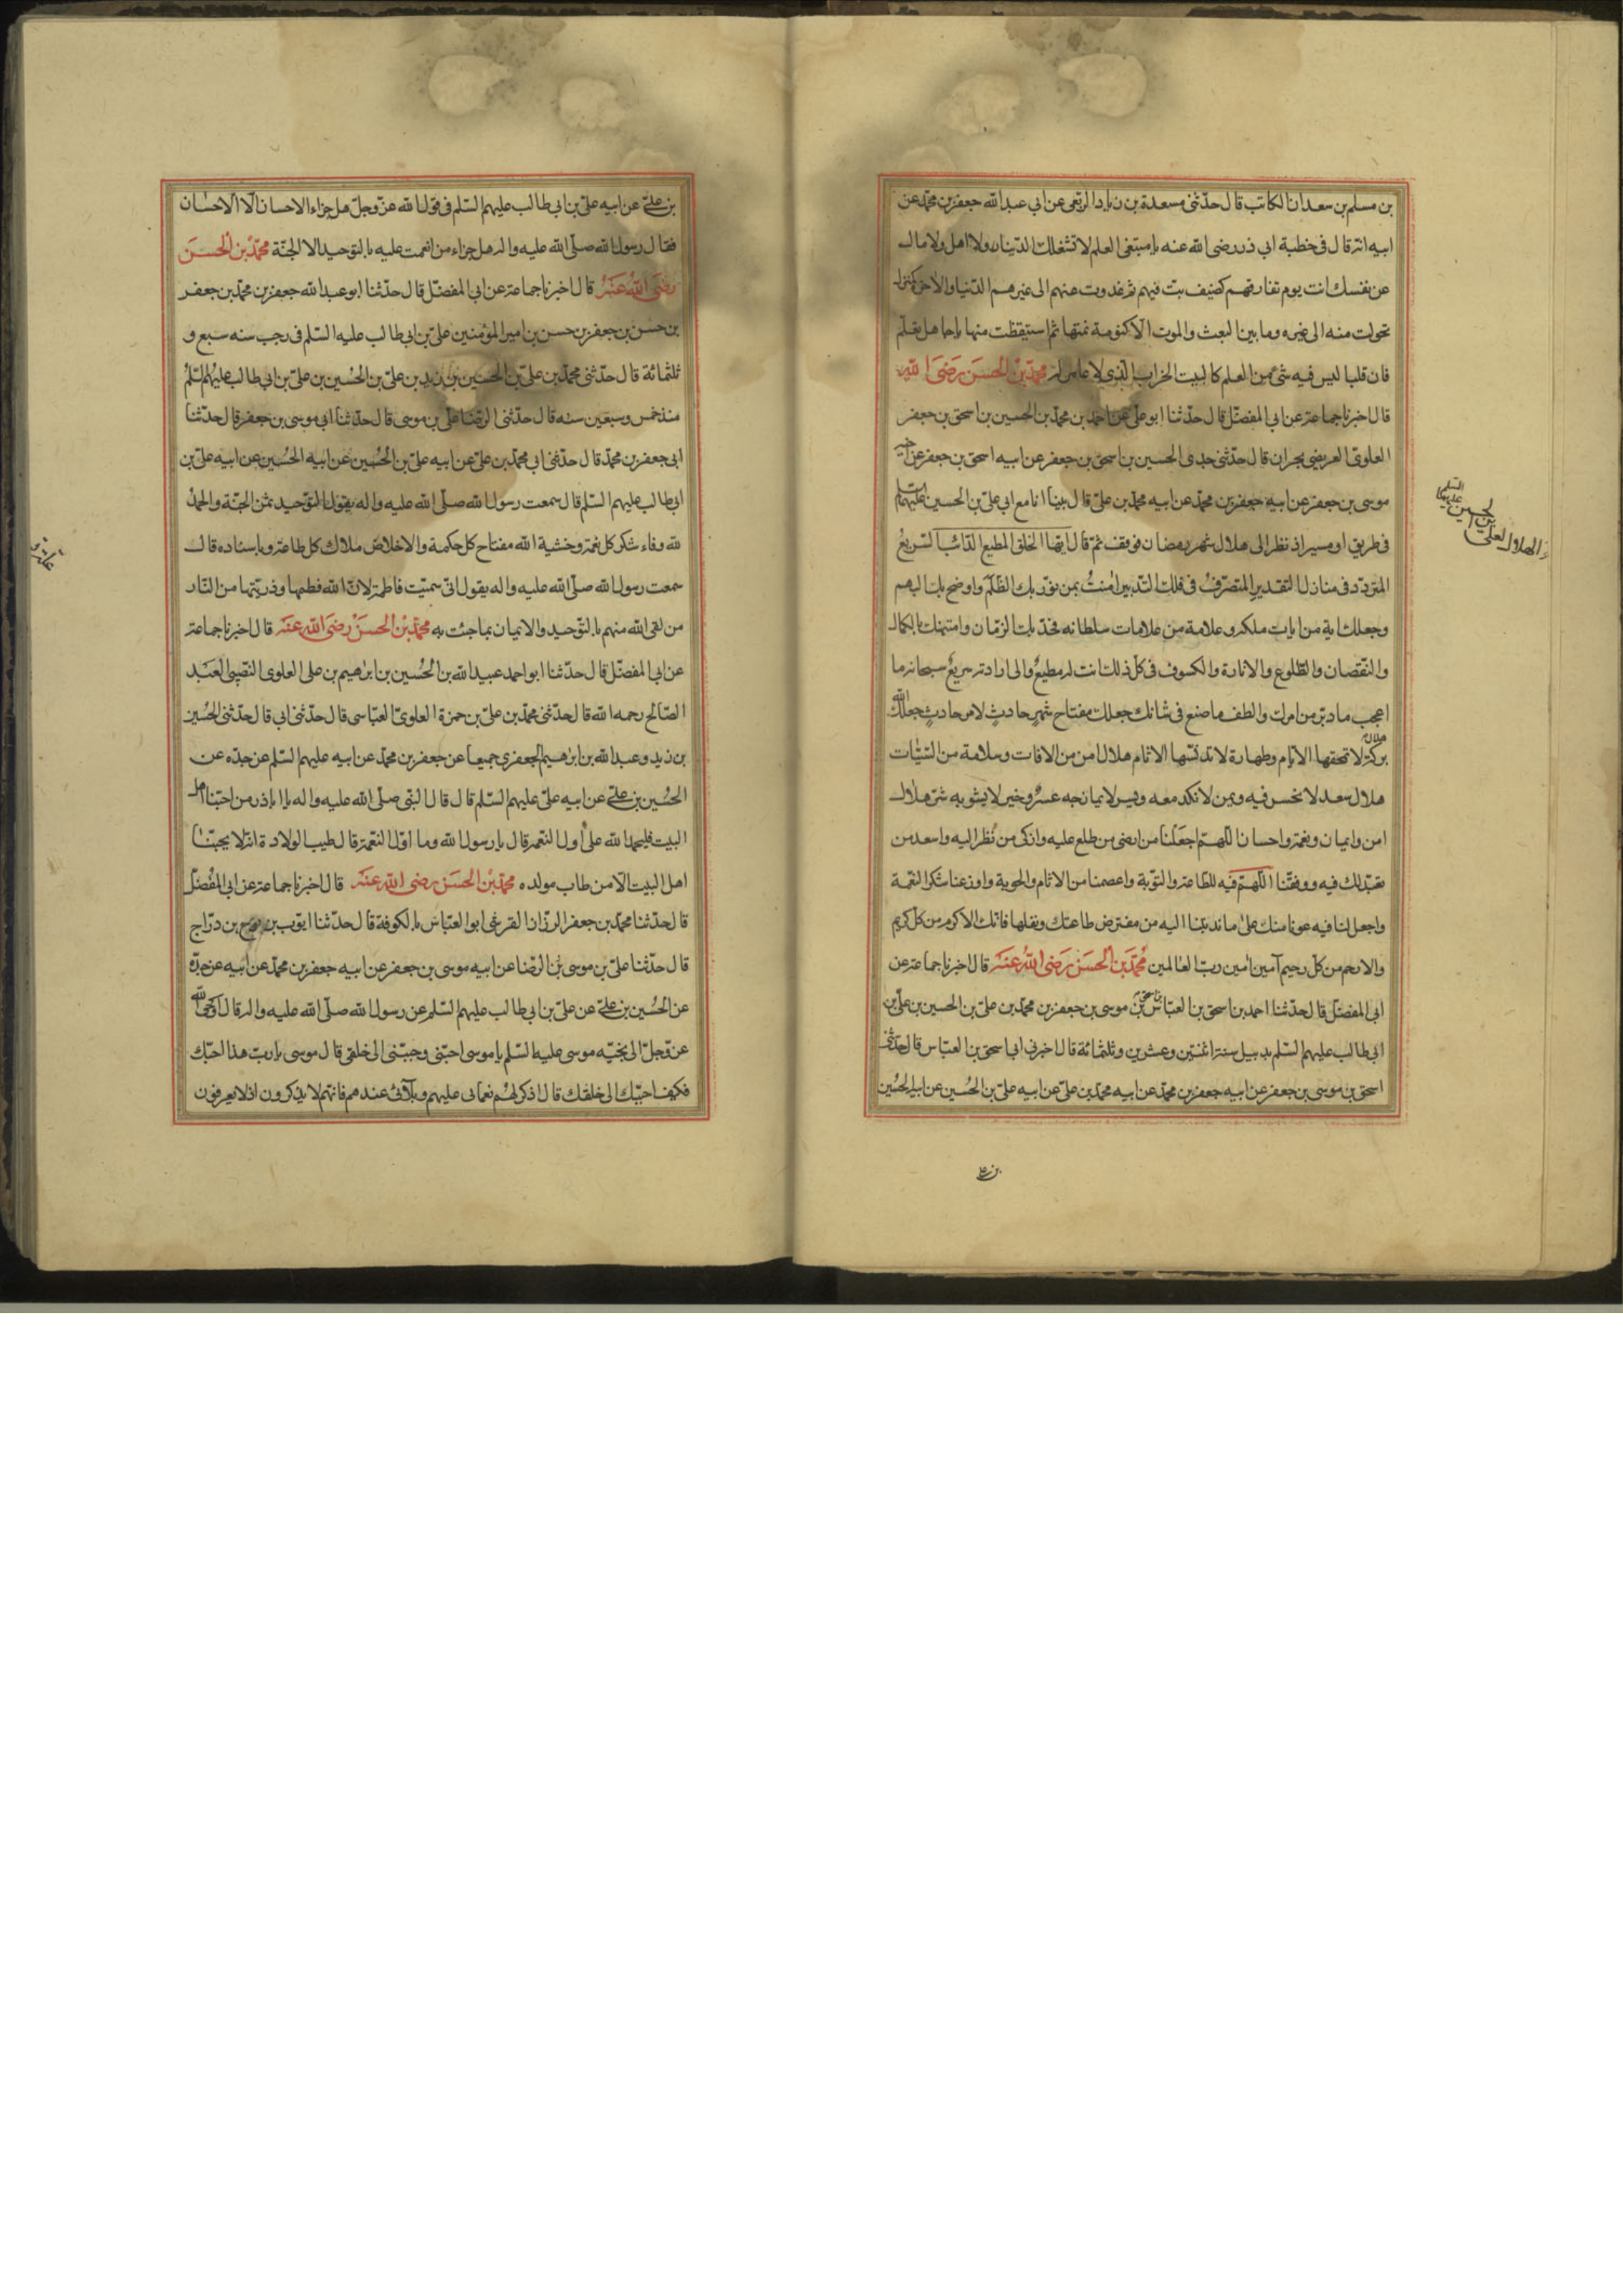 بن مسلم بن سعدان الكاتب قال حدّثنى مسعدة بن زياد الربعى عن ابى عبد الله جعفر بن محمّد عن
ابيه انه قال فى خطبة ابى ذر رضى الله عنه يا مبتغى العلم لا تشغلك الدّنيا ولا اهل ولا مال
عن نفسك انت يوم تفارقهم كضيف بتّ فيهم ثم غدوت عنهم الى غيرهم الدّنيا والآخرة كمنزل
تحولت منه الى غيره وما بين البعث والموت الّا كنومة نمتها ثم استيقظت منها يا جاهل تعلّم
فان قلبا ليس فيه شئ من العلم كالبيت الخراب الّذى لا عامر له محمّد بن الحسن رضى الله
قال اخبرنا جماعة عن ابى المفضّل قال حدّثنا ابو على احمد بن محمّد بن الحسين بن اسحق بن جعفر
العلوىّ العريضى بحران قال حدّثنى جدى الحسين بن اسحق بن جعفر عن ابيه اسحق بن جعفر عن اخيه
موسى بن جعفر عن ابيه جعفر بن محمّد عن ابيه محمّد بن علىّ قال بينا انا مع ابى علىّ بن الحسين عليهما السلم
فى طريق او مسير اذ نظر الى هلال شهر رمضان فوقف ثم قال ايّها الخلق المطيع الدّائب السّريع
المتردّد فى منازل التقدير المتصرّف فى فلك التّدبير آمنت بمن نوّر بك الظّلم واوضح بك البهم
وجعلك اية من ايات ملكه وعلامة من علامات سلطانه فحدّ بك الزّمان وامتهنك بالكمال
والنّقصان والطّلوع والانارة والكسوف فى كلّ ذلك انت له مطيع والى ارادته سريع سبحانه ما
اعجب ما دبّر من امرك والطف ما صنع فى شانك جعلك مفتاح شهر حادث لامر حادث جعلك الله
هلال بركة لا تمحقها الايّام وطهارة لا تدنّسها الاثام هلال امن من الافات وسلامة من السّيّئات
هلال سعد لا نحس فيه ويمن لا نكد معه ويسر لا يمازجه عسر وخير لا يشوبه شرّ هلال
امن وايمان ونعمة واحسان اللّهمّ اجعلنا من ارضى من طلع عليه وازكى من نظر اليه واسعد من
تعبّد لك فيه ووفّقنا اللّهمّ فيه للطّاعة والتّوبة واعصمنا من الاثام والحوبة واوزعنا شكر النّعمة
واجعل لنا فيه عونا منك على ما ندبتنا اليه من مفترض طاعتك ونفلها فانّك الاكرم من كلّ كريم
والارحم من كلّ رحيم آمين آمين ربّ العالمين محمّد بن الحسن رضى الله عنه قال اخبرنا جماعة عن
ابى المفضّل قال حدّثنا احمد بن اسحق بن العبّاس بن اسحق بن موسى بن جعفر بن محمّد بن علىّ بن الحسين بن علىّ بن
ابى طالب عليهم السّلم بدبيل سنة اثنتين وعشرين وثلثمائة قال اخبرنى ابى اسحق بن العبّاس قال حدّثنى
اسحق بن موسى بن جعفر عن ابيه جعفر بن محمّد عن ابيه محمّد بن علىّ عن ابيه علىّ بن الحسين عن ابيه الحسين
بن على
الهلال لعلى بن الحسين عليهما السلم
بن على عن ابيه علىّ بن ابى طالب عليهم السّلم فى قول الله عزّ وجلّ هل جزاء الاحسان الّا الاحسان
فقال رسول الله صلّى الله عليه واله هل جزاء من انعمت عليه بالتوحيد الا الجنّة محمّد بن الحسن
رضى الله عنه قال اخبرنا جماعة عن ابى المفضّل قال حدّثنا ابو عبد الله جعفر بن محمّد بن جعفر
بن حسن بن جعفر بن حسن بن امير المؤمنين علىّ بن ابى طالب عليه السّلم فى رجب سنه سبع و
ثلثمائة قال حدّثنى محمّد بن علىّ بن الحسين بن زيد بن علىّ بن الحسين بن علىّ بن ابى طالب عليهم السّلم
منذ خمس وسبعين سنه قال حدّثنى الرّضا علىّ بن موسى قال حدّثنا ابى موسى بن جعفر قال حدّثنا
ابى جعفر بن محمّد قال حدّثنى ابى محمّد بن علىّ عن ابيه علىّ بن الحسين عن ابيه الحسين عن ابيه علىّ بن
ابى طالب عليهم السّلم قال سمعت رسول الله صلّى الله عليه واله يقول التّوحيد ثمن الجنّة والحمد
لله وفاء شكر كل نعمة وخشية الله مفتاح كل حكمة والاخلاص ملاك كل طاعة وباسناده قال
سمعت رسول الله صلّى الله عليه واله يقول انّى سمّيت فاطمة لانّ الله فطمها وذريّتها من النّار
من لقى الله منهم بالتّوحيد والايمان بما جئت به محمّد بن الحسن رضى الله عنه قال اخبرنا جماعة
عن ابى المفضّل قال حدّثنا ابو احمد عبيد الله بن الحسين بن ابرهيم بن على العلوى النّصيبى العبد
الصّالح رحمه الله قال حدّثنى محمّد بن علىّ بن حمزة العلوىّ العبّاسى قال حدّثنى ابى قال حدّثنى الحسين
بن زيد وعبد الله بن ابرهيم الجعفرى جميعا عن جعفر بن محمّد عن ابيه عليهم السّلم عن جدّه عن
الحسين بن علىّ عن ابيه علىّ عليهم السّلم قال قال النّبى صلّى الله عليه واله يا ابا ذر من احبّنا اهل
البيت فليحمد الله على اول النّعمة قال يا رسول الله وما اوّل النّعمة قال طيب الولادة انّه لا يحبّنا
اهل البيت الّا من طاب مولده محمّد بن الحسن رضى الله عنه قال اخبرنا جماعة عن ابى المفضّل
قال حدّثنا محمّد بن جعفر الرزّاز القرشى ابو العبّاس بالكوفة قال حدّثنا ايّوب بن نوح بن درّاج
قال حدّثنا علىّ بن موسى الرّضا عن ابيه موسى بن جعفر عن ابيه جعفر بن محمّد عن ابيه عن جدّه
عن الحسين بن علىّ عن علىّ بن ابى طالب عليهم السّلم عن رسول الله صلّى الله عليه واله قال اوحى الله
عزّ وجلّ الى نجيّه موسى عليه السّلم يا موسى احبّنى وحبّبنى الى خلقى قال موسى يا ربّ هذا احبّك
فكيف احبّبك الى خلقك قال اذكر لهم نعمائى عليهم وبلائى عندهم فانّهم لا يذكرون اذ لا يعرفون